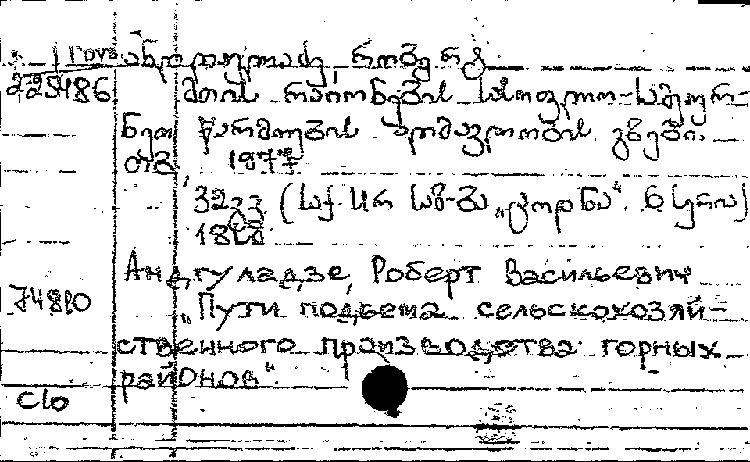 ანდღულაძე, რობერტ
225486 მთის რაიონების სასოფლო-სამეურ-
ნეო წარმოების აღმავლობის გზები.
თბ. 1977
32გვ (საქ. სსრ საზ-ბა „ცოდნა“. სერია)
Андгуладзе, Роберт Васильевич
74810 „Пути подъема сельскохозяй-
ственного производства горных
районов“.